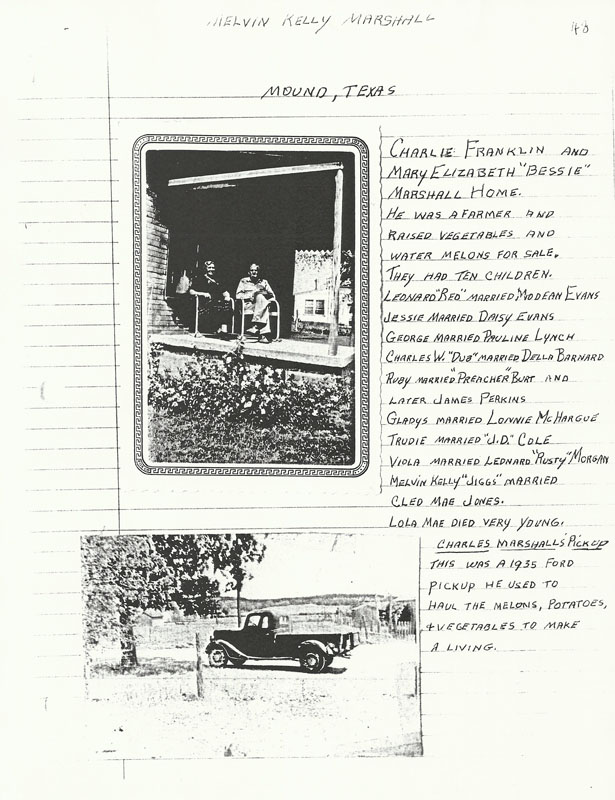 MELVIN KELLY MARSHALL
48
MOUND, TEXAS
CHARLIE FRANKLIN AND
MARY ELIZABETH "BESSIE"
MARSHALL HOME.
HE WAS A FARMER AND
RAISED VEGETABLES AND
WATER MELONS FOR SALE.
THEY HAD TEN CHILDREN.
LEONARD "RED" MARRIED MODEAN EVANS
JESSIE MARRIED DAISY EVANS
GEORGE MARRIED PAULINE LYNCH
CHARLES W. "DUB" MARRIED DELLA BARNARD
RUBY MARRIED "PREACHER" BURT AND
LATER JAMES PERKINS
GLADYS MARRIED LONNIE McHARGUE
TRUDIE MARRIED "J.D." COLE
VIOLA MARRIED LEONARD "RUSTY" MORGAN
MELVIN KELLY "JIGGS" MARRIED
CLEO MAE JONES.
LOLA MAE DIED VERY YOUNG.
CHARLES MARSHALL'S PICKUP
THIS WAS A 1935 FORD
PICKUP HE USED TO
HAUL THE MELONS, POTATOES,
+ VEGETABLES TO MAKE
A LIVING.